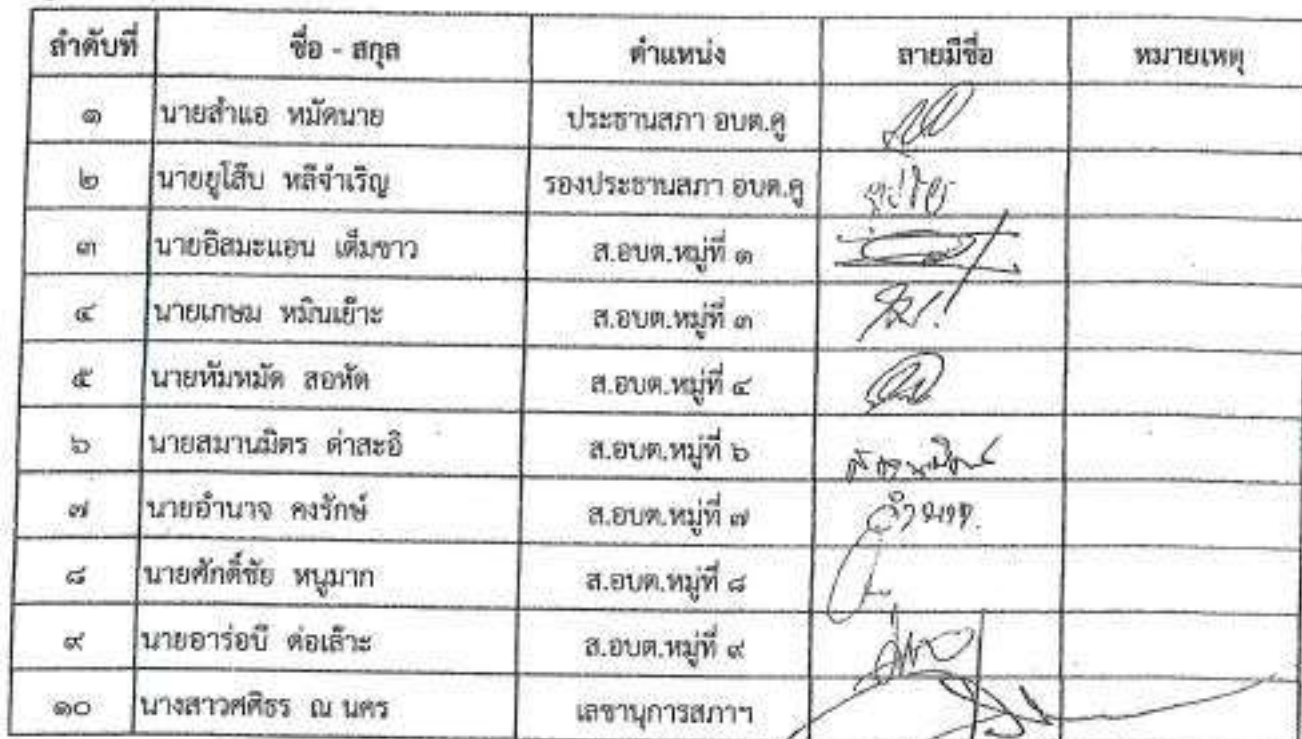 ลำดับที่ ชื่อ - สกุล ตำแหน่ง ลายมือชื่อ หมายเหตุ
๑ นายสำแอ หมัดนาย ประธานสภา อบต.คู
๒ นายยูโส๊บ หลีจำเริญ รองประธานสภา อบต.คู
๓ นายอิสมะแอน เต็มขาว ส.อบต.หมู่ที่ ๑
๔ นายเกษม หมินเย๊าะ ส.อบต.หมู่ที่ ๓
๕ นายหัมหมัด สอหัด ส.อบต.หมู่ที่ ๔
๖ นายสมานมิตร ด่าสะอิ ส.อบต.หมู่ที่ ๖
๗ นายอำนาจ คงรักษ์ ส.อบต.หมู่ที่ ๗ อำนาจ
๘ นายศักดิ์ชัย หนูมาก ส.อบต.หมู่ที่ ๘
๙ นายอาร่อบี ต่อเล๊าะ ส.อบต.หมู่ที่ ๙
๑๐ นางสาวศศิธร ณ นคร เลขานุการสภาฯ